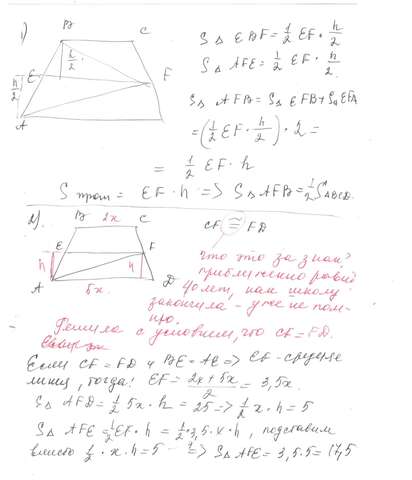 1)
B C
h/2
E F
h/2
A
S△ EBF = 1/2 EF · h/2
S△ AFE = 1/2 EF · h/2
S△ AFB = S△ EFB + S△ EFA
= (1/2 EF · h/2) · 2 =
= 1/2 EF · h
S трап = EF · h => S△AFB = 1/2 SABCD.
2).
B 2x C
CF ≅ FD
E F
h h
A 5x D
что это за знак?
приближенно равно
40 лет, как школу
закончила - уже не пом-
ню.
Решила с условием, что CF = FD.
Если CF = FD и BE = AE => EF - средняя
линия, тогда: EF = (2x + 5x)/2 = 3,5x.
S△ AFD = 1/2 5x · h = 25 => 1/2 x · h = 5
S△ AFE = 1/2 EF · h = 1/2 · 3,5 · x · h, подставим
вместо 1/2 · x · h = 5 => S△ AFE = 3,5 · 5 = 17,5